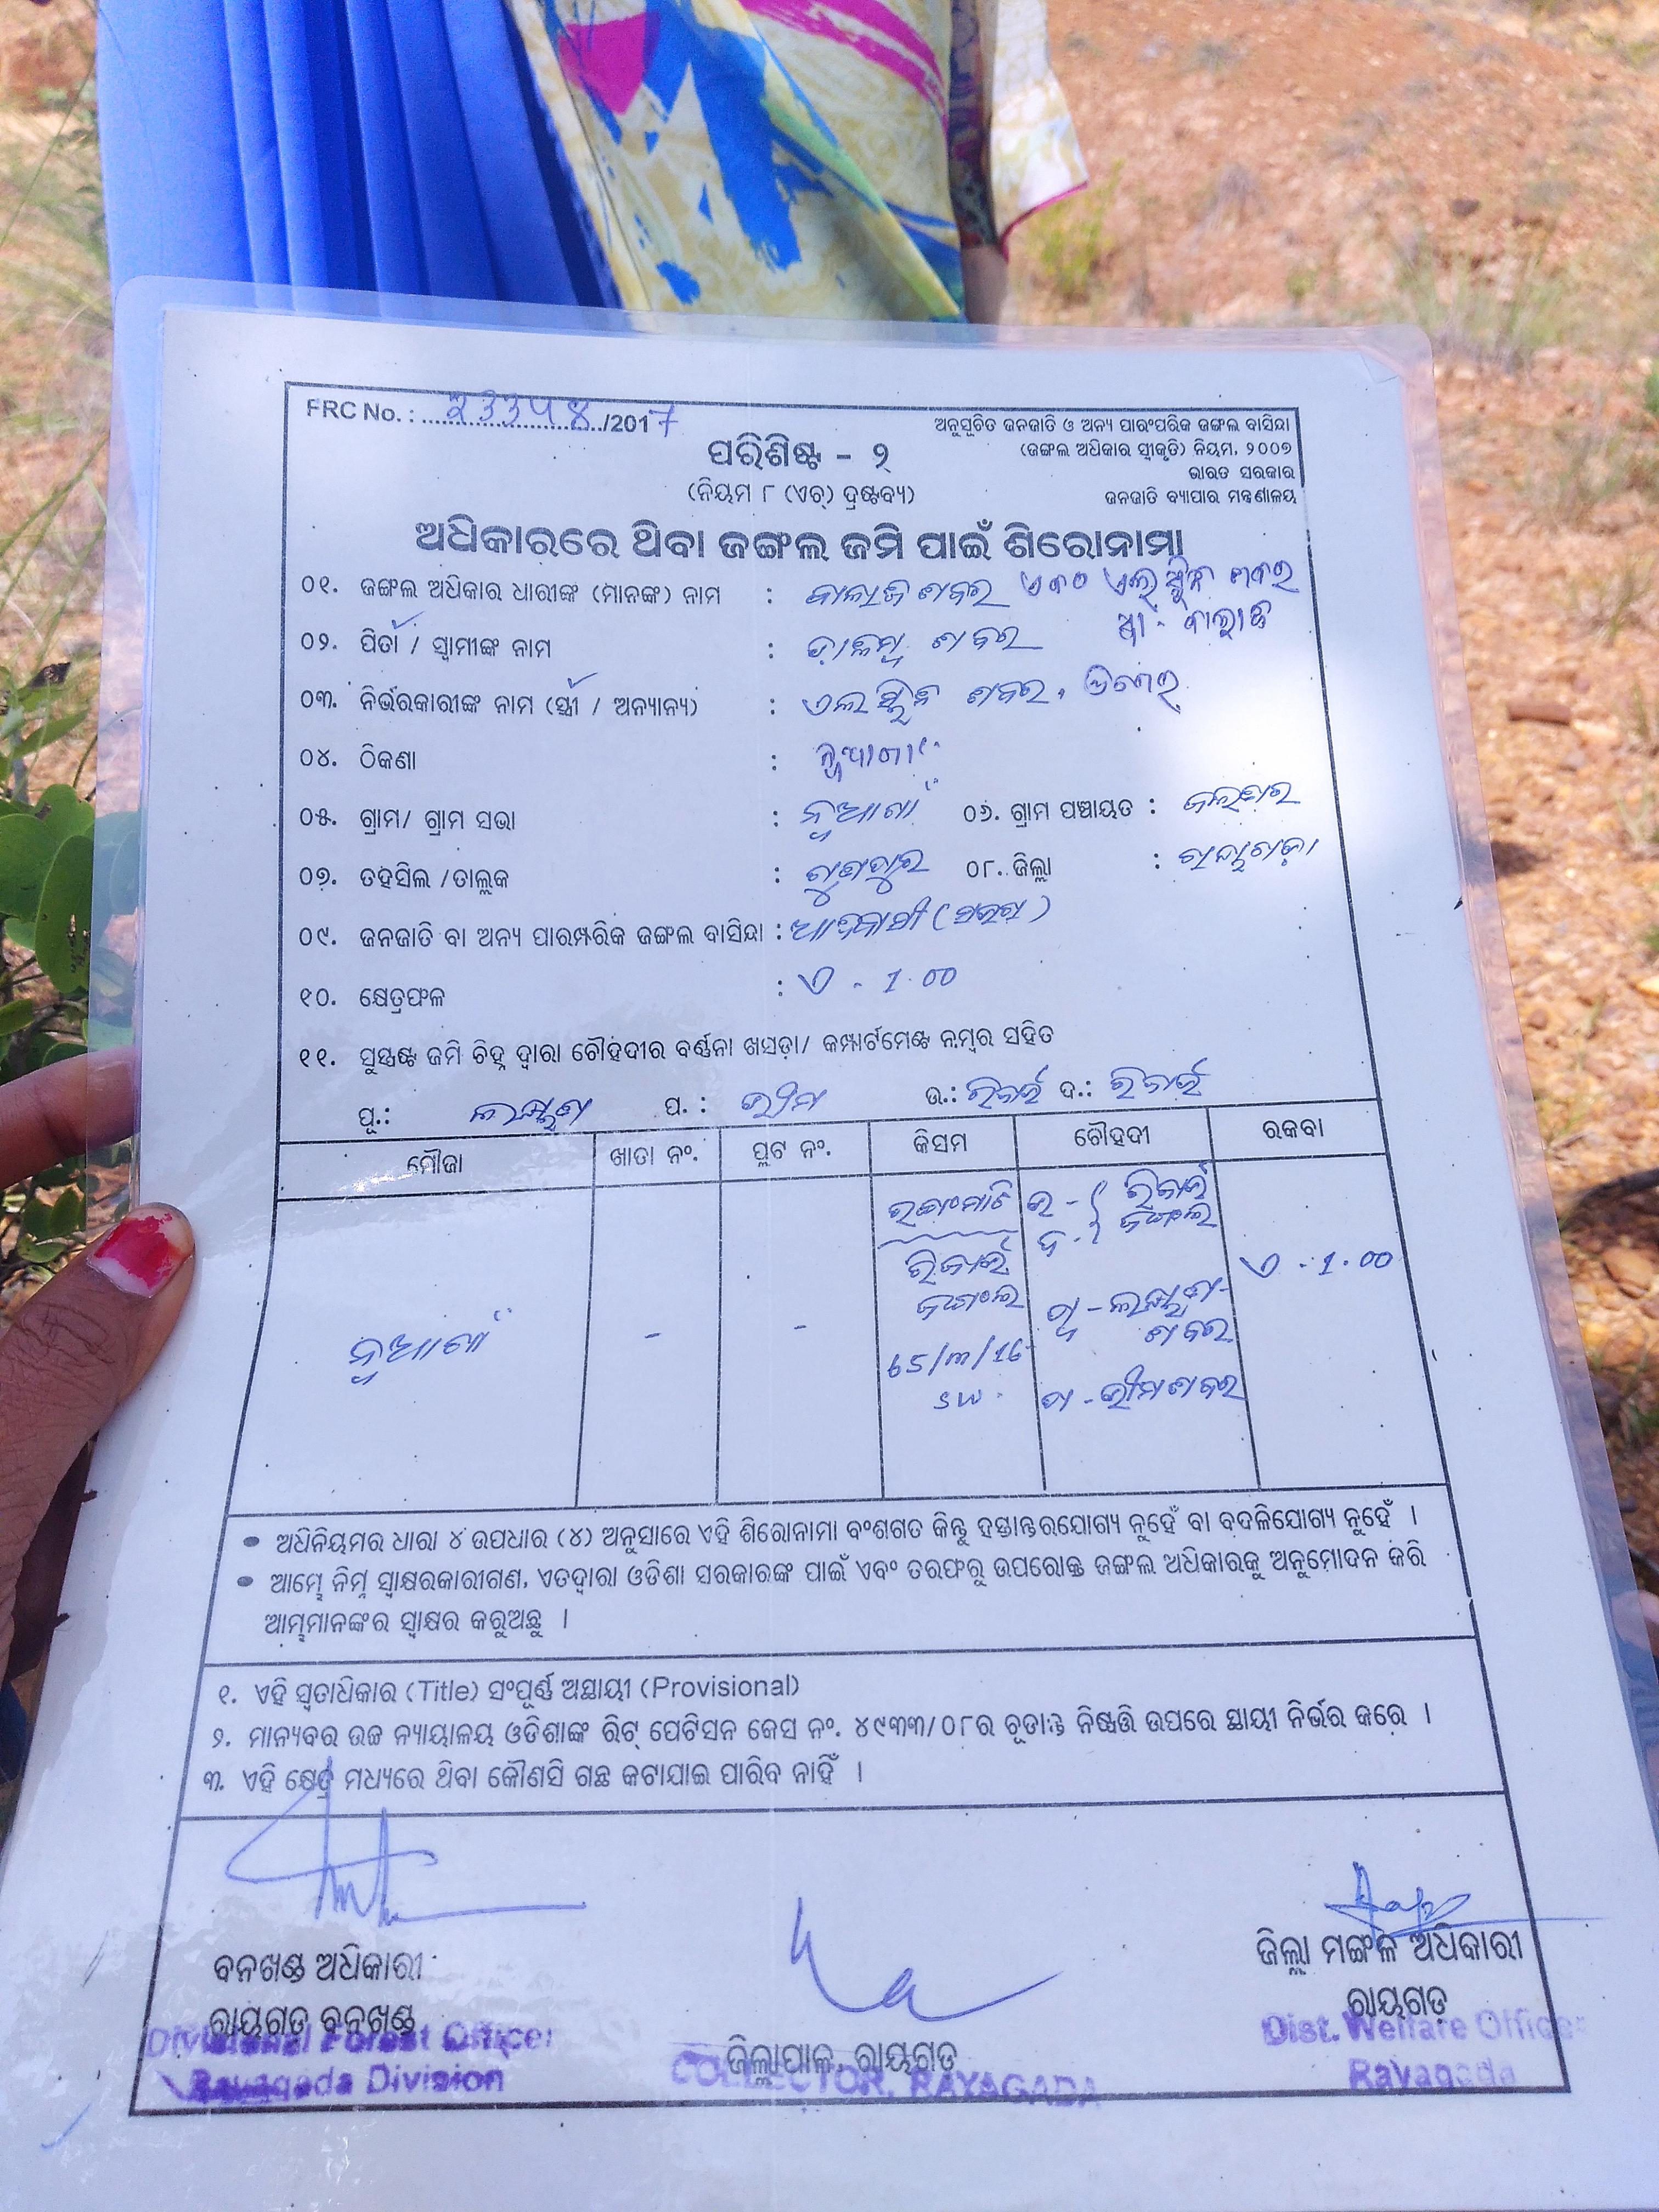 FRC No. : 23348/2017
ଅନୁସୂଚିତ ଜନଜାତି ଓ ଅନ୍ୟ ପାରଂପରିକ ଜଙ୍ଗଲ ବାସିନ୍ଦା
(ଜଙ୍ଗଲ ଅଧିକାର ସ୍ୱୀକୃତି) ନିୟମ, ୨୦୦୭
ଭାରତ ସରକାର
ଜନଜାତି ବ୍ୟାପାର ମନ୍ତ୍ରଣାଳୟ
ପରିଶିଷ୍ଟ - ୨
(ନିୟମ ୮ (ଏଚ୍) ଦ୍ରଷ୍ଟବ୍ୟ)
ଅଧିକାରରେ ଥିବା ଜଙ୍ଗଲ ଜମି ପାଇଁ ଶିରୋନାମା
୦୧. ଜଙ୍ଗଲ ଅଧିକାର ଧାରୀଙ୍କ (ମାନଙ୍କ) ନାମ : ଶବର
୦୨. ପିତା / ସ୍ୱାମୀଙ୍କ ନାମ : ଶବର
୦୩. ନିର୍ଭରକାରୀଙ୍କ ନାମ (ସ୍ତ୍ରୀ / ଅନ୍ୟାନ୍ୟ) : ଶବର,
୦୪. ଠିକଣା : ନୂଆଗାଁ
୦୫. ଗ୍ରାମ/ ଗ୍ରାମ ସଭା : ନୂଆଗାଁ ୦୬. ଗ୍ରାମ ପଞ୍ଚାୟତ :
୦୭. ତହସିଲ /ତାଲ୍ଲକ : ଗୁଣୁପୁର ୦୮. ଜିଲ୍ଲା : ରାୟଗଡ଼ା
୦୯. ଜନଜାତି ବା ଅନ୍ୟ ପାରମ୍ପରିକ ଜଙ୍ଗଲ ବାସିନ୍ଦା : ଆଦିବାସୀ
୧୦. କ୍ଷେତ୍ରଫଳ : ଏ - 1.00
୧୧. ସୁସ୍ପଷ୍ଟ ଜମି ଚିହ୍ନ ଦ୍ୱାରା ଚୌହଦୀର ବର୍ଣ୍ଣନା ଖସଡ଼ା/ କମ୍ପାର୍ଟମେଣ୍ଟ ନମ୍ବର ସହିତ
ପୂ.: ଲକ୍ଷ୍ମଣ ପ. : ଭୀମ ଉ.: ରିଜର୍ଭ ଦ.: ରିଜର୍ଭ
ମୌଜା ଖାତା ନଂ. ପ୍ଲଟ ନଂ. କିସମ ଚୌହଦୀ ରକବା
ଉ - ରିଜର୍ଭ
ଦ - ଜଙ୍ଗଲ
ରିଜର୍ଭ
ଜଙ୍ଗଲ
ଏ - 1.00
ନୂଆଗାଁ - - 65/m/16 ପୂ - ଲକ୍ଷ୍ମଣ ଶବର
SW. ପ - ଭୀମ ଶବର
• ଅଧିନିୟମର ଧାରା ୪ ଉପଧାର (୪) ଅନୁସାରେ ଏହି ଶିରୋନାମା ବଂଶଗତ କିନ୍ତୁ ହସ୍ତାନ୍ତରଯୋଗ୍ୟ ନୁହେଁ ବା ବଦଳିଯୋଗ୍ୟ ନୁହେଁ ।
• ଆମ୍ଭେ ନିମ୍ନ ସ୍ୱାକ୍ଷରକାରୀଗଣ, ଏତଦ୍ୱାରା ଓଡିଶା ସରକାରଙ୍କ ପାଇଁ ଏବଂ ତରଫରୁ ଉପରୋକ୍ତ ଜଙ୍ଗଲ ଅଧିକାରକୁ ଅନୁମୋଦନ କରି
ଆମ୍ଭମାନଙ୍କର ସ୍ୱାକ୍ଷର କରୁଅଛୁ ।
୧. ଏହି ସ୍ୱତାଧିକାର (Title) ସଂପୂର୍ଣ୍ଣ ଅସ୍ଥାୟୀ (Provisional)
୨. ମାନ୍ୟବର ଉଚ୍ଚ ନ୍ୟାୟାଳୟ ଓଡିଶାଙ୍କ ରିଟ୍ ପେଟିସନ କେସ ନଂ. ୪୯୩୩/୦୮ର ଚୂଡାନ୍ତ ନିଷ୍ପତ୍ତି ଉପରେ ସ୍ଥାୟୀ ନିର୍ଭର କରେ ।
୩. ଏହି କ୍ଷେତ୍ର ମଧ୍ୟରେ ଥିବା କୌଣସି ଗଛ କଟାଯାଇ ପାରିବ ନାହିଁ ।
ବନଖଣ୍ଡ ଅଧିକାରୀ
ରାୟଗଡ ବନଖଣ୍ଡ
Divisional Forest Officer
Rayagada Division
ଜିଲ୍ଲାପାଳ, ରାୟଗଡ
COLLECTOR, RAYAGADA
ଜିଲ୍ଲା ମଙ୍ଗଳ ଅଧିକାରୀ
ରାୟଗଡ
Dist. Welfare Officer
Rayagada